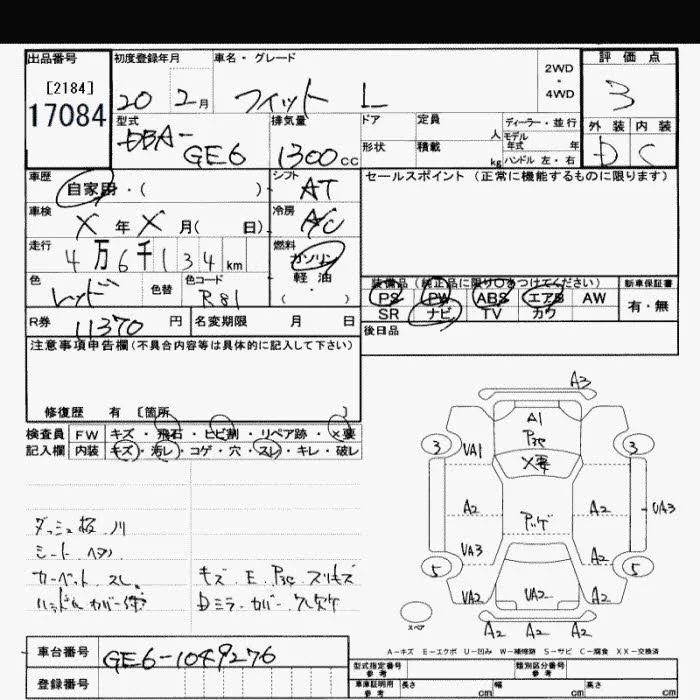 出品番号 初度登録年月 車名・グレード 2WD・4WD 評価点
[2184]
17084 20 2月 フィット L 3
型式 排気量 ドア 定員 人 ディーラー・並行 外装 内装
DBA- モデル年式 年
GE6 1300cc 形状 積載 kg ハンドル 左・右 D C
車歴 自家用・( ) シフト AT セールスポイント (正常に機能するものに限ります)
車検 X年X月( 日) 冷房 A/C
走行 4万6千134km 燃料 ガソリン
軽油
・( )
色 レッド 色替 色コード R81
装備品(純正品に限り○をつけてください) 新車保証書
PS PW ABS エアB AW 有・無
SR ナビ TV カワ
R券 11370円 名変期限 月 日 後日品
注意事項申告欄(不具合内容等は具体的に記入して下さい)
修復歴 有 [箇所 ]
検査員 FW キズ・飛石・ヒビ割・リペア跡・×要
記入欄 内装 キズ・汚レ・コゲ・穴・スレ・キレ・破レ
シート
カーペット スレ
キズ・E
Dミラーカバー
A3
A1
3 VA1 ×要 3
A2 A2 UA3
VA3 A2
5 5
VA2 UA2 A2
スペア A2 A2 A2
A-キズ E-エクボ U-凹み W-補修跡 S-サビ C-腐食 XX-交換済
車台番号 GE6-1049276
登録番号
型式指定番号 参考 類別区分番号 参考
車庫証明用 参考 長さ cm 幅 cm 高さ cm